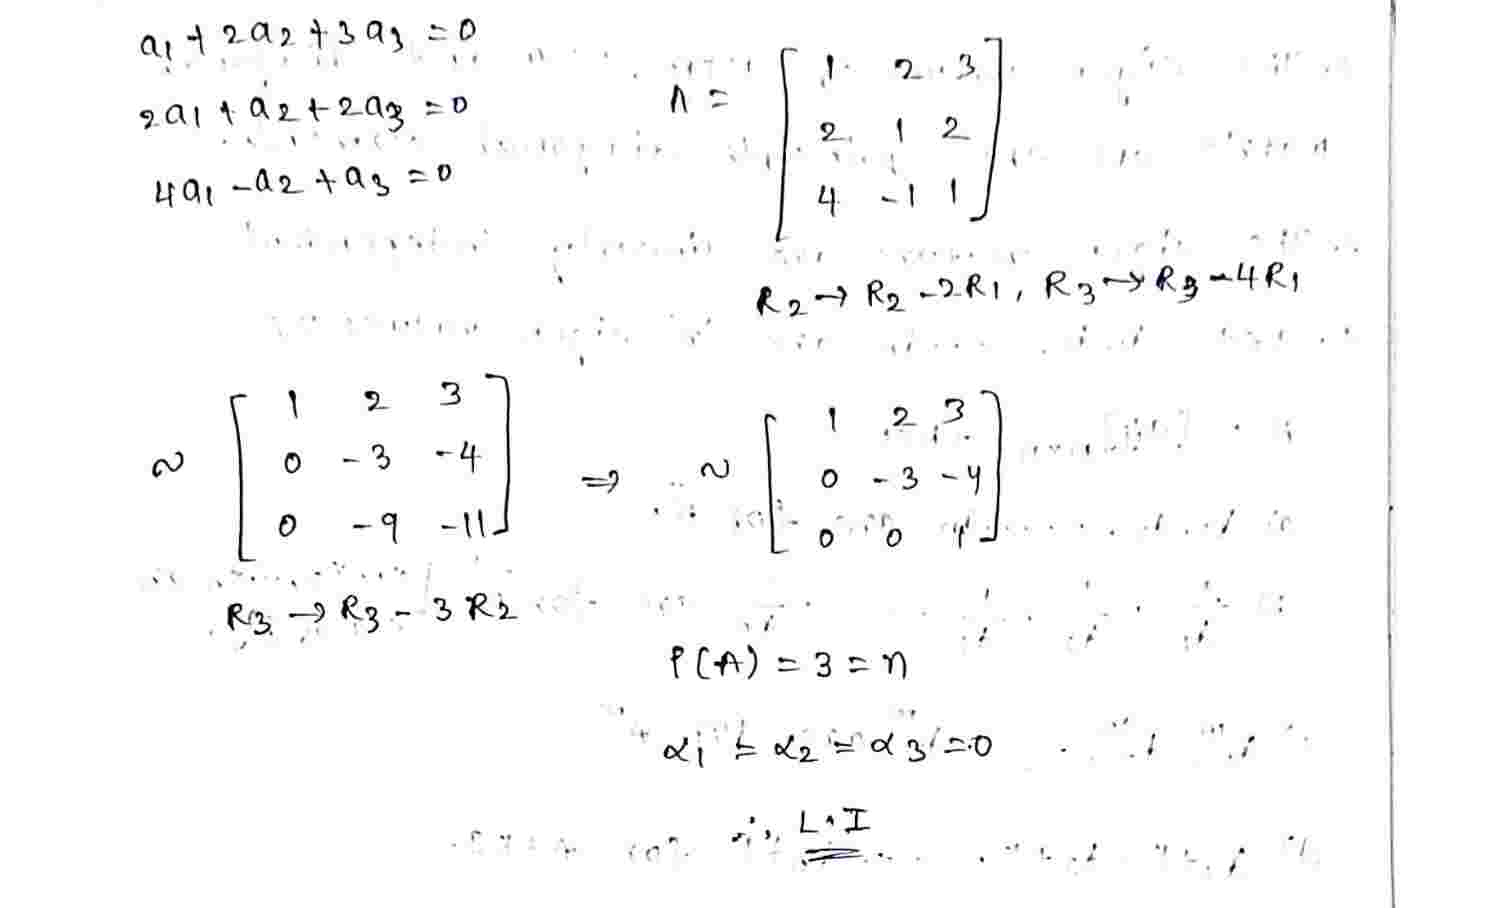 a1 + 2a2 + 3a3 = 0
2a1 + a2 + 2a3 = 0
4a1 - a2 + a3 = 0
A = [ 1 2 3
2 1 2
4 -1 1 ]
R2 → R2 - 2R1, R3 → R3 - 4R1
~ [ 1 2 3
0 -3 -4
0 -9 -11 ]
R3 → R3 - 3R2
⇒ ~ [ 1 2 3
0 -3 -4
0 0 1 ]
P(A) = 3 = n
α1 = α2 = α3 = 0
∴ L.I